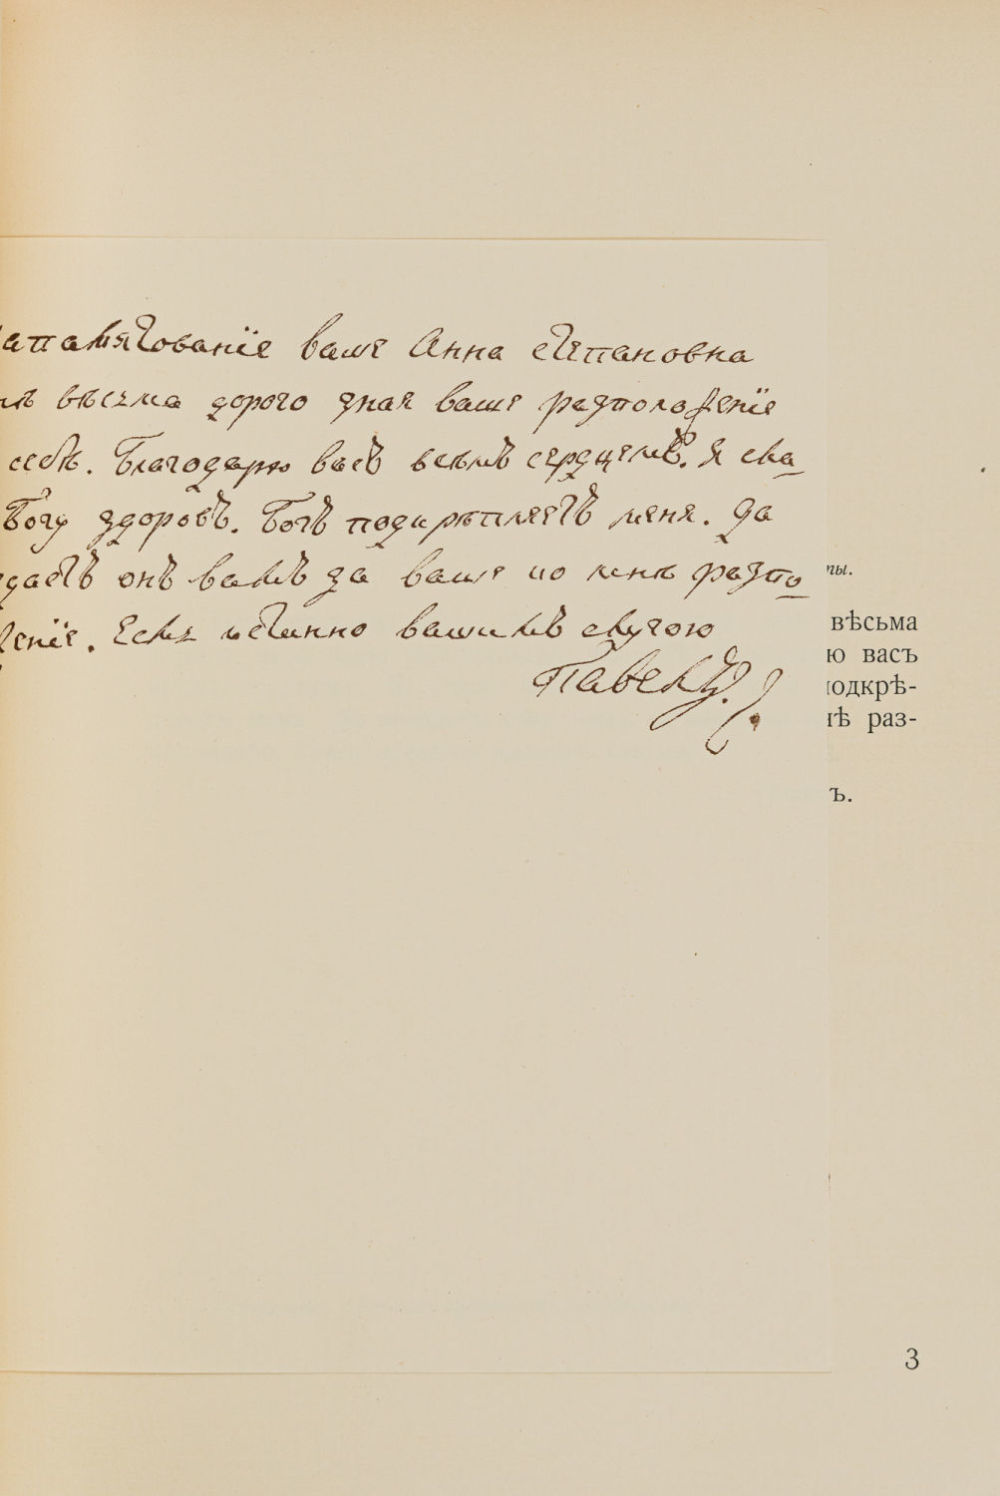 апамятованїе ваше Анна Степановна
нѣ вѣсьма дорого зная ваше разположенїе
себѣ. Благодарю васъ всѣмъ сердцемъ. Я сла
Богу здоровъ. Богъ подкрѣпляетъ меня. Да
здастъ онъ вамъ за ваше ко мнѣ разпо
енїе. Есмь истинно вашимъ слугою
Павелъ.
ты.
вѣсьма
ю васъ
подкрѣ-
нѣ раз-
ъ.
3